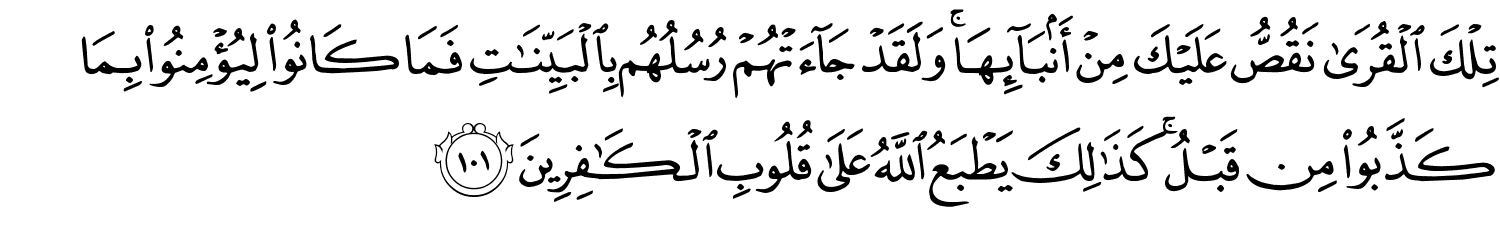 تِلْكَ ٱلْقُرَىٰ نَقُصُّ عَلَيْكَ مِنْ أَنۢبَآئِهَا ۚ وَلَقَدْ جَآءَتْهُمْ رُسُلُهُم بِٱلْبَيِّنَـٰتِ فَمَا كَانُوا۟ لِيُؤْمِنُوا۟ بِمَا
كَذَّبُوا۟ مِن قَبْلُ ۚ كَذَٰلِكَ يَطْبَعُ ٱللَّهُ عَلَىٰ قُلُوبِ ٱلْكَـٰفِرِينَ ١٠١